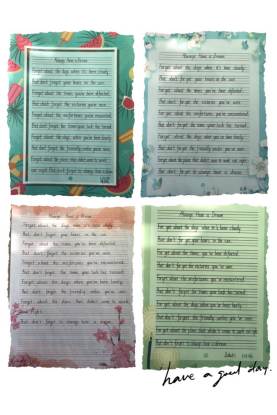 Always Have a Dream
Forget about the days when it's been cloudy.
But don't forget your hours in the sun.
Forget about the times you've been defeated.
But don't forget the victories you've won.
Forget about the misfortunes you've encountered.
But don't forget the times your luck has turned.
Forget about the days when you've been lonely.
But don't forget the friendly smiles you've seen.
Forget about the plans that didn't seem to work out right.
But don't forget to always have a dream.
Always Have a Dream
Forget about the days when it's been cloudy.
But don't forget your hours in the sun.
Forget about the times you've been defeated.
But don't forget the victories you've won.
Forget about the misfortunes you've encountered.
But don't forget the times your luck has turned.
Forget about the days when you've been lonely.
But don't forget the friendly smiles you've seen.
Forget about the plans that didn't seem to work out right.
But don't forget to always have a dream.
Always Have a Dream
Forget about the days when it's been cloudy.
But don't forget your hours in the sun.
Forget about the times you've been defeated.
But don't forget the victories you've won.
Forget about the misfortunes you've encountered.
But don't forget the times your luck has turned.
Forget about the days when you've been lonely.
But don't forget the friendly smiles you've seen.
Forget about the plans that didn't seem to work
out right.
But don't forget to always have a dream.
Always Have a Dream
Forget about the days when it's been cloudy.
But don't forget your hours in the sun.
Forget about the times you've been defeated.
But don't forget the victories you've won.
Forget about the misfortunes you've encountered.
But don't forget the times your luck has turned.
Forget about the days when you've been lonely.
But don't forget the friendly smiles you've seen.
Forget about the plans that didn't seem to work out right.
But don't forget to always have a dream.
have a good day.